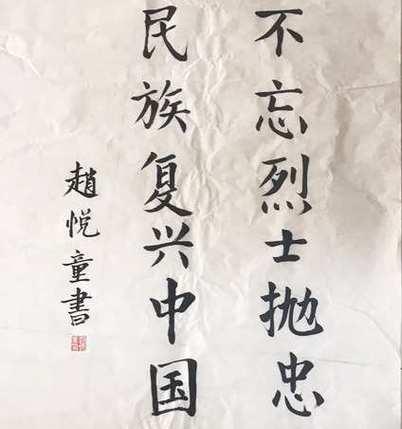 不忘烈士抛忠
民族复兴中国
趙悦童書